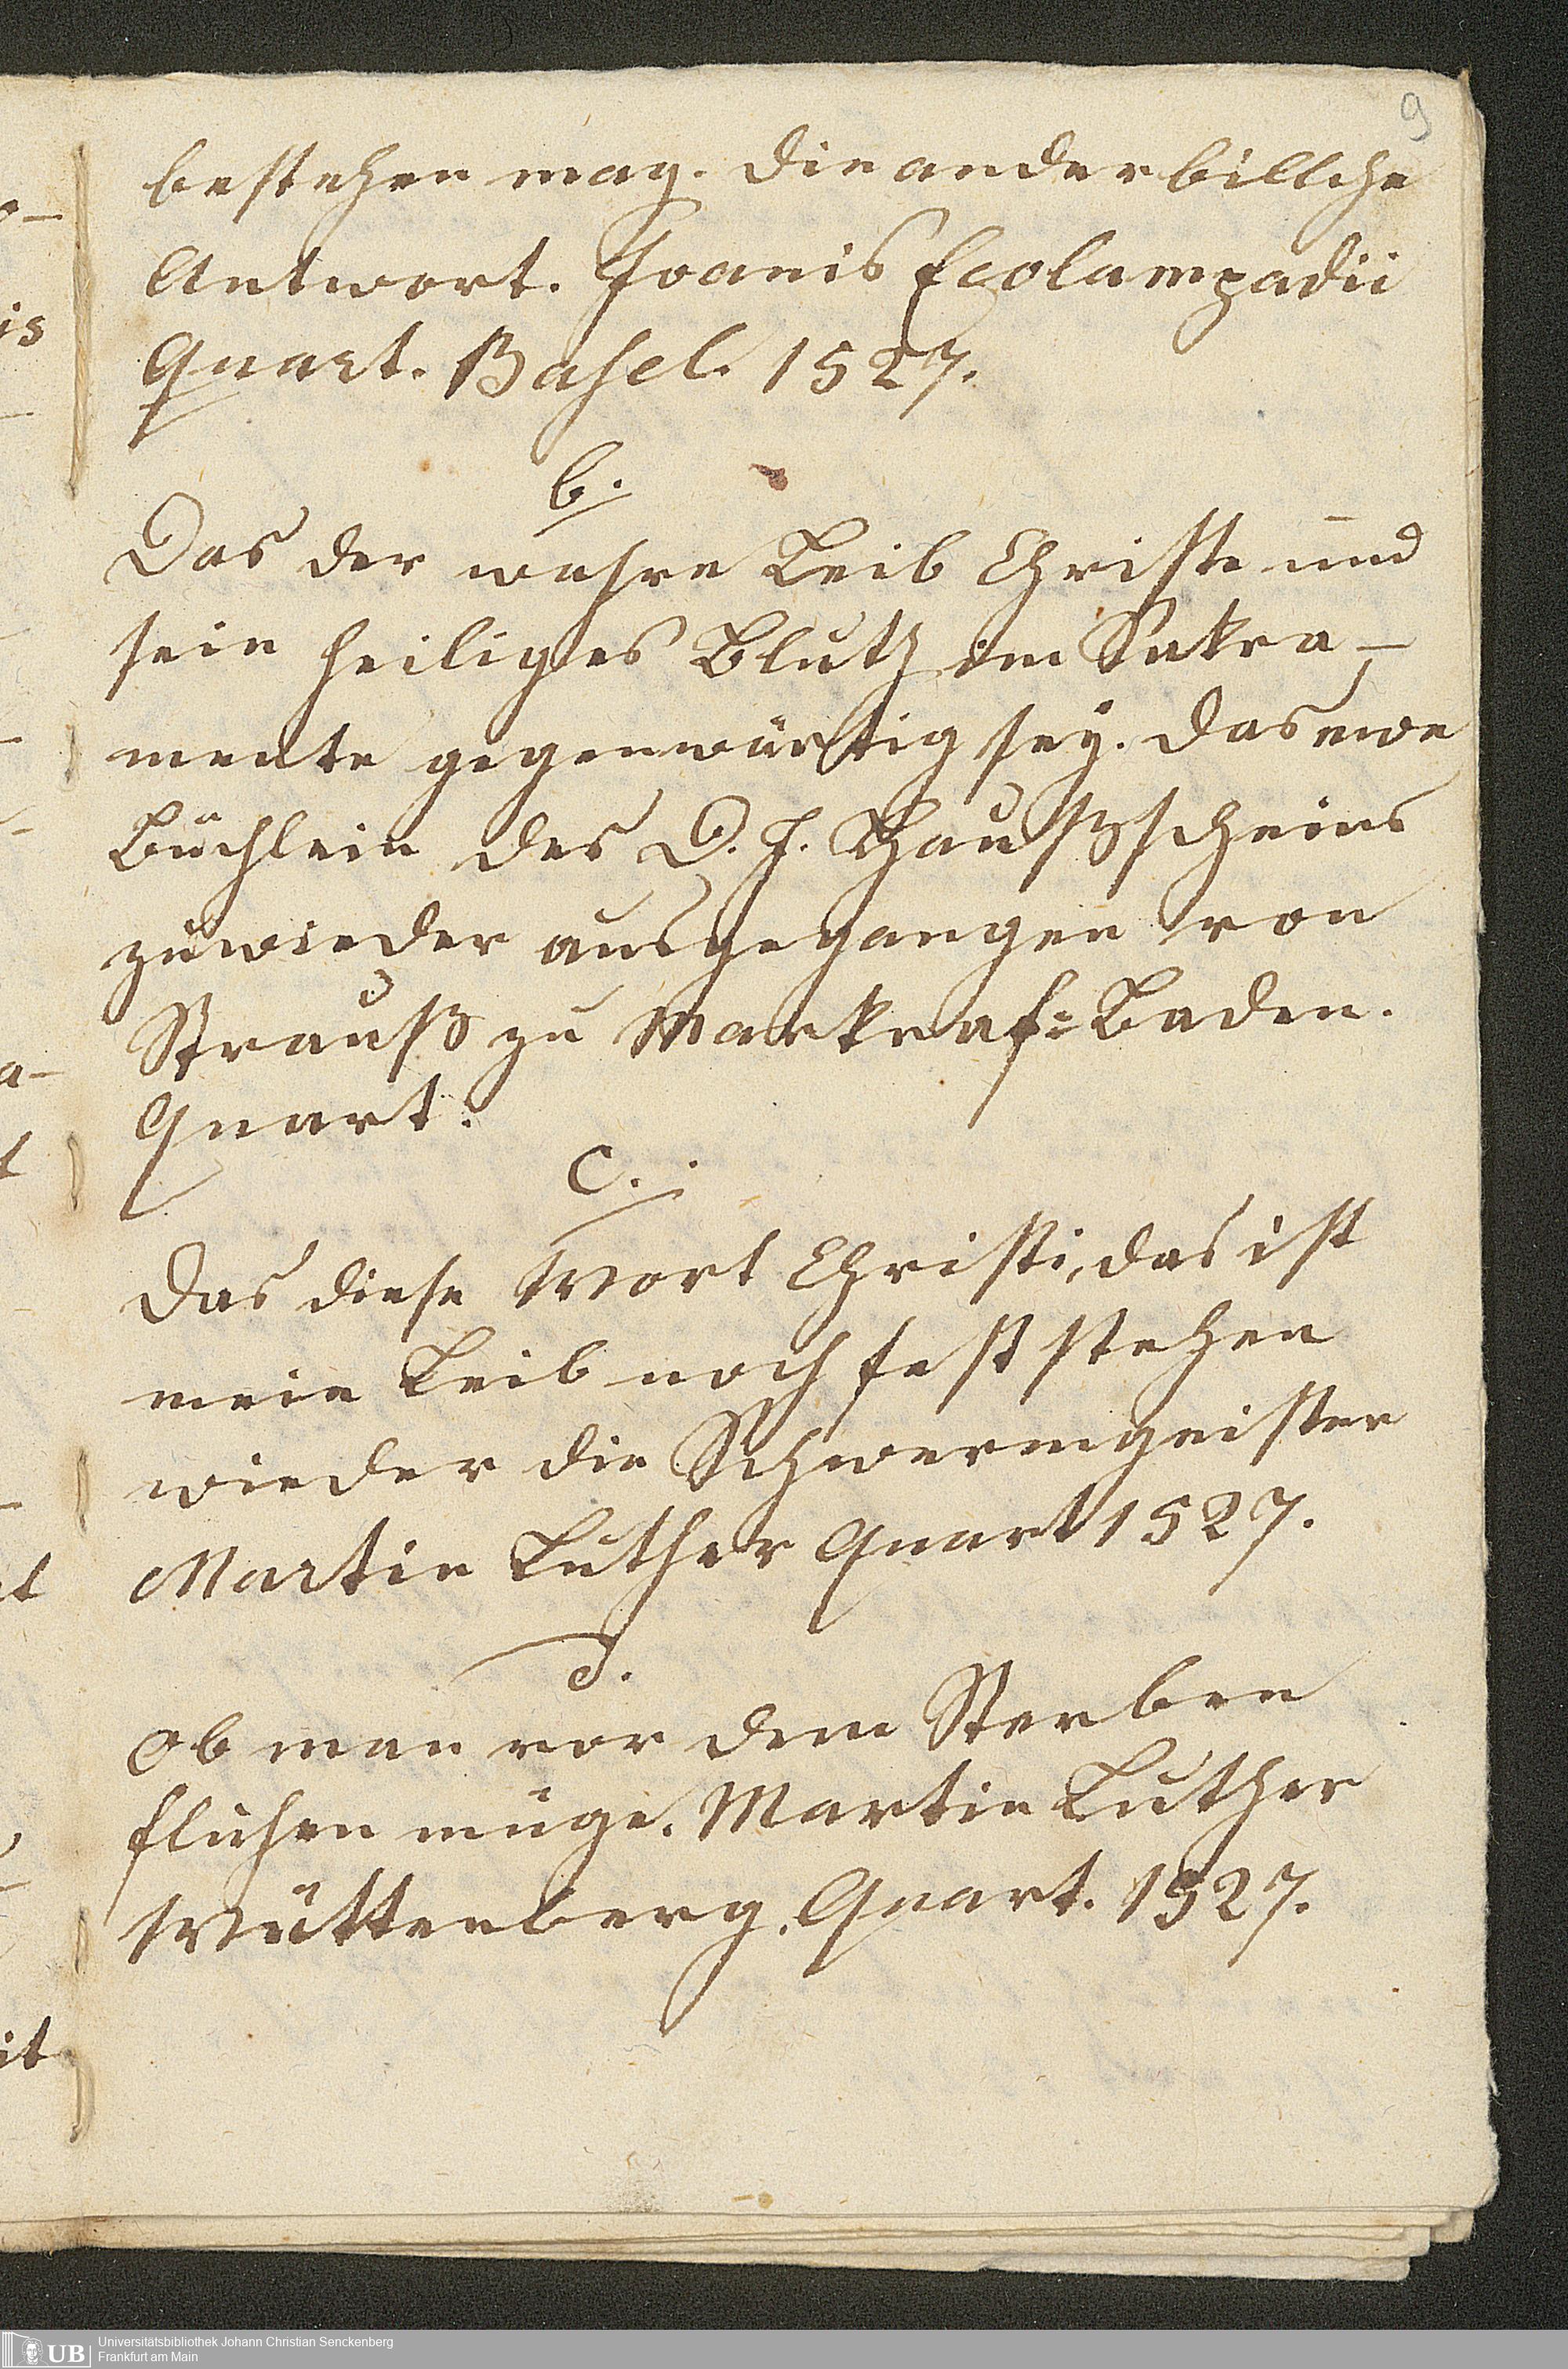 9
bestehen mag. die ander billche
Antwort. Joanis Ecolampadii
Quart. Basel. 1527.
b.
Das der wahre Leib Christe und
sein heiliges Bluth im Sakra-
mente gegenwürtig sey. das newe
Büchlein des D. J. Haußscheins
zuwieder ausgegangen von
Strauß zu Markraf=Baden.
Quart.
c.
das diese Wort Christi, das ist
mein Leib noch fest stehen
wieder die Schwermgeister
Martin Luther Quart 1527.
d.
Ob man vor dem Sterben
fliehen müge. Martin Luther
Wüttenberg. Quart. 1527.
is
a-
t
it
UB Universitätsbibliothek Johann Christian Senckenberg
Frankfurt am Main